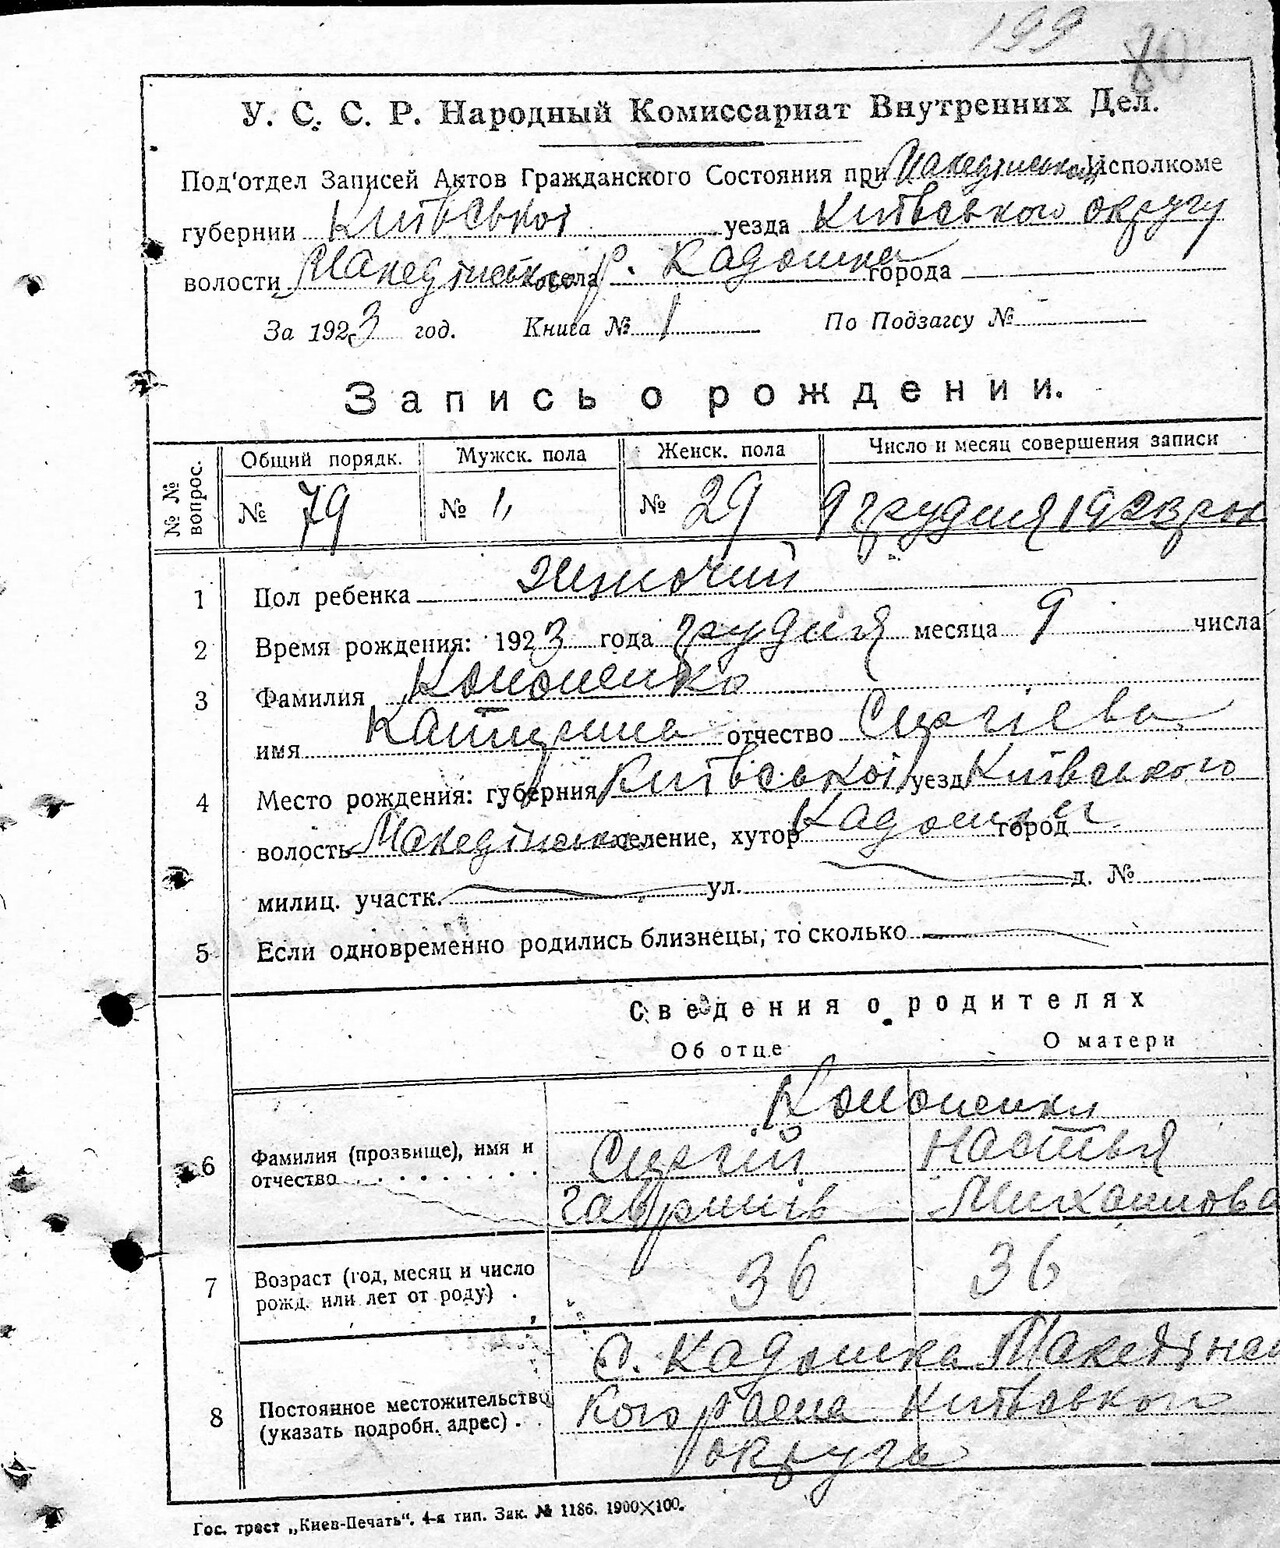 199
80
У. С. С. Р. Народный Комиссариат Внутренних Дел.
Под'отдел Записей Актов Гражданского Состояния при Исполкоме
губернии Київської уезда Київського округу
волости села р. Кадомка города
За 1923 год. Книга № 1 По Подзагсу №
Запись о рождении.
№№ вопрос. Общий порядк. Мужск. пола Женск. пола Число и месяц совершения записи
№ 79 № 〃 № 29 9 грудня 1923 рок
1 Пол ребенка жіночий
2 Время рождения: 1923 года грудня месяца 9 числа
3 Фамилия Кононенко
имя Катерина отчество Сергієва
4 Место рождения: губерния Київської уезд Київського
волость селение, хутор город
милиц. участк. ул. д. №
5 Если одновременно родились близнецы, то сколько
Сведения о родителях
Об отце О матери
Кононенки
6 Фамилия (прозвище), имя и отчество Сергій Настья
Гаврилів Михаилова
7 Возраст (год, месяц и число рожд. или лет от роду) 36 36
8 Постоянное местожительство (указать подробн. адрес) С. Кадомка
кого раена Київського
округа
Гос. трест „Киев-Печать". 4-я тип. Зак. № 1186. 1900×100.